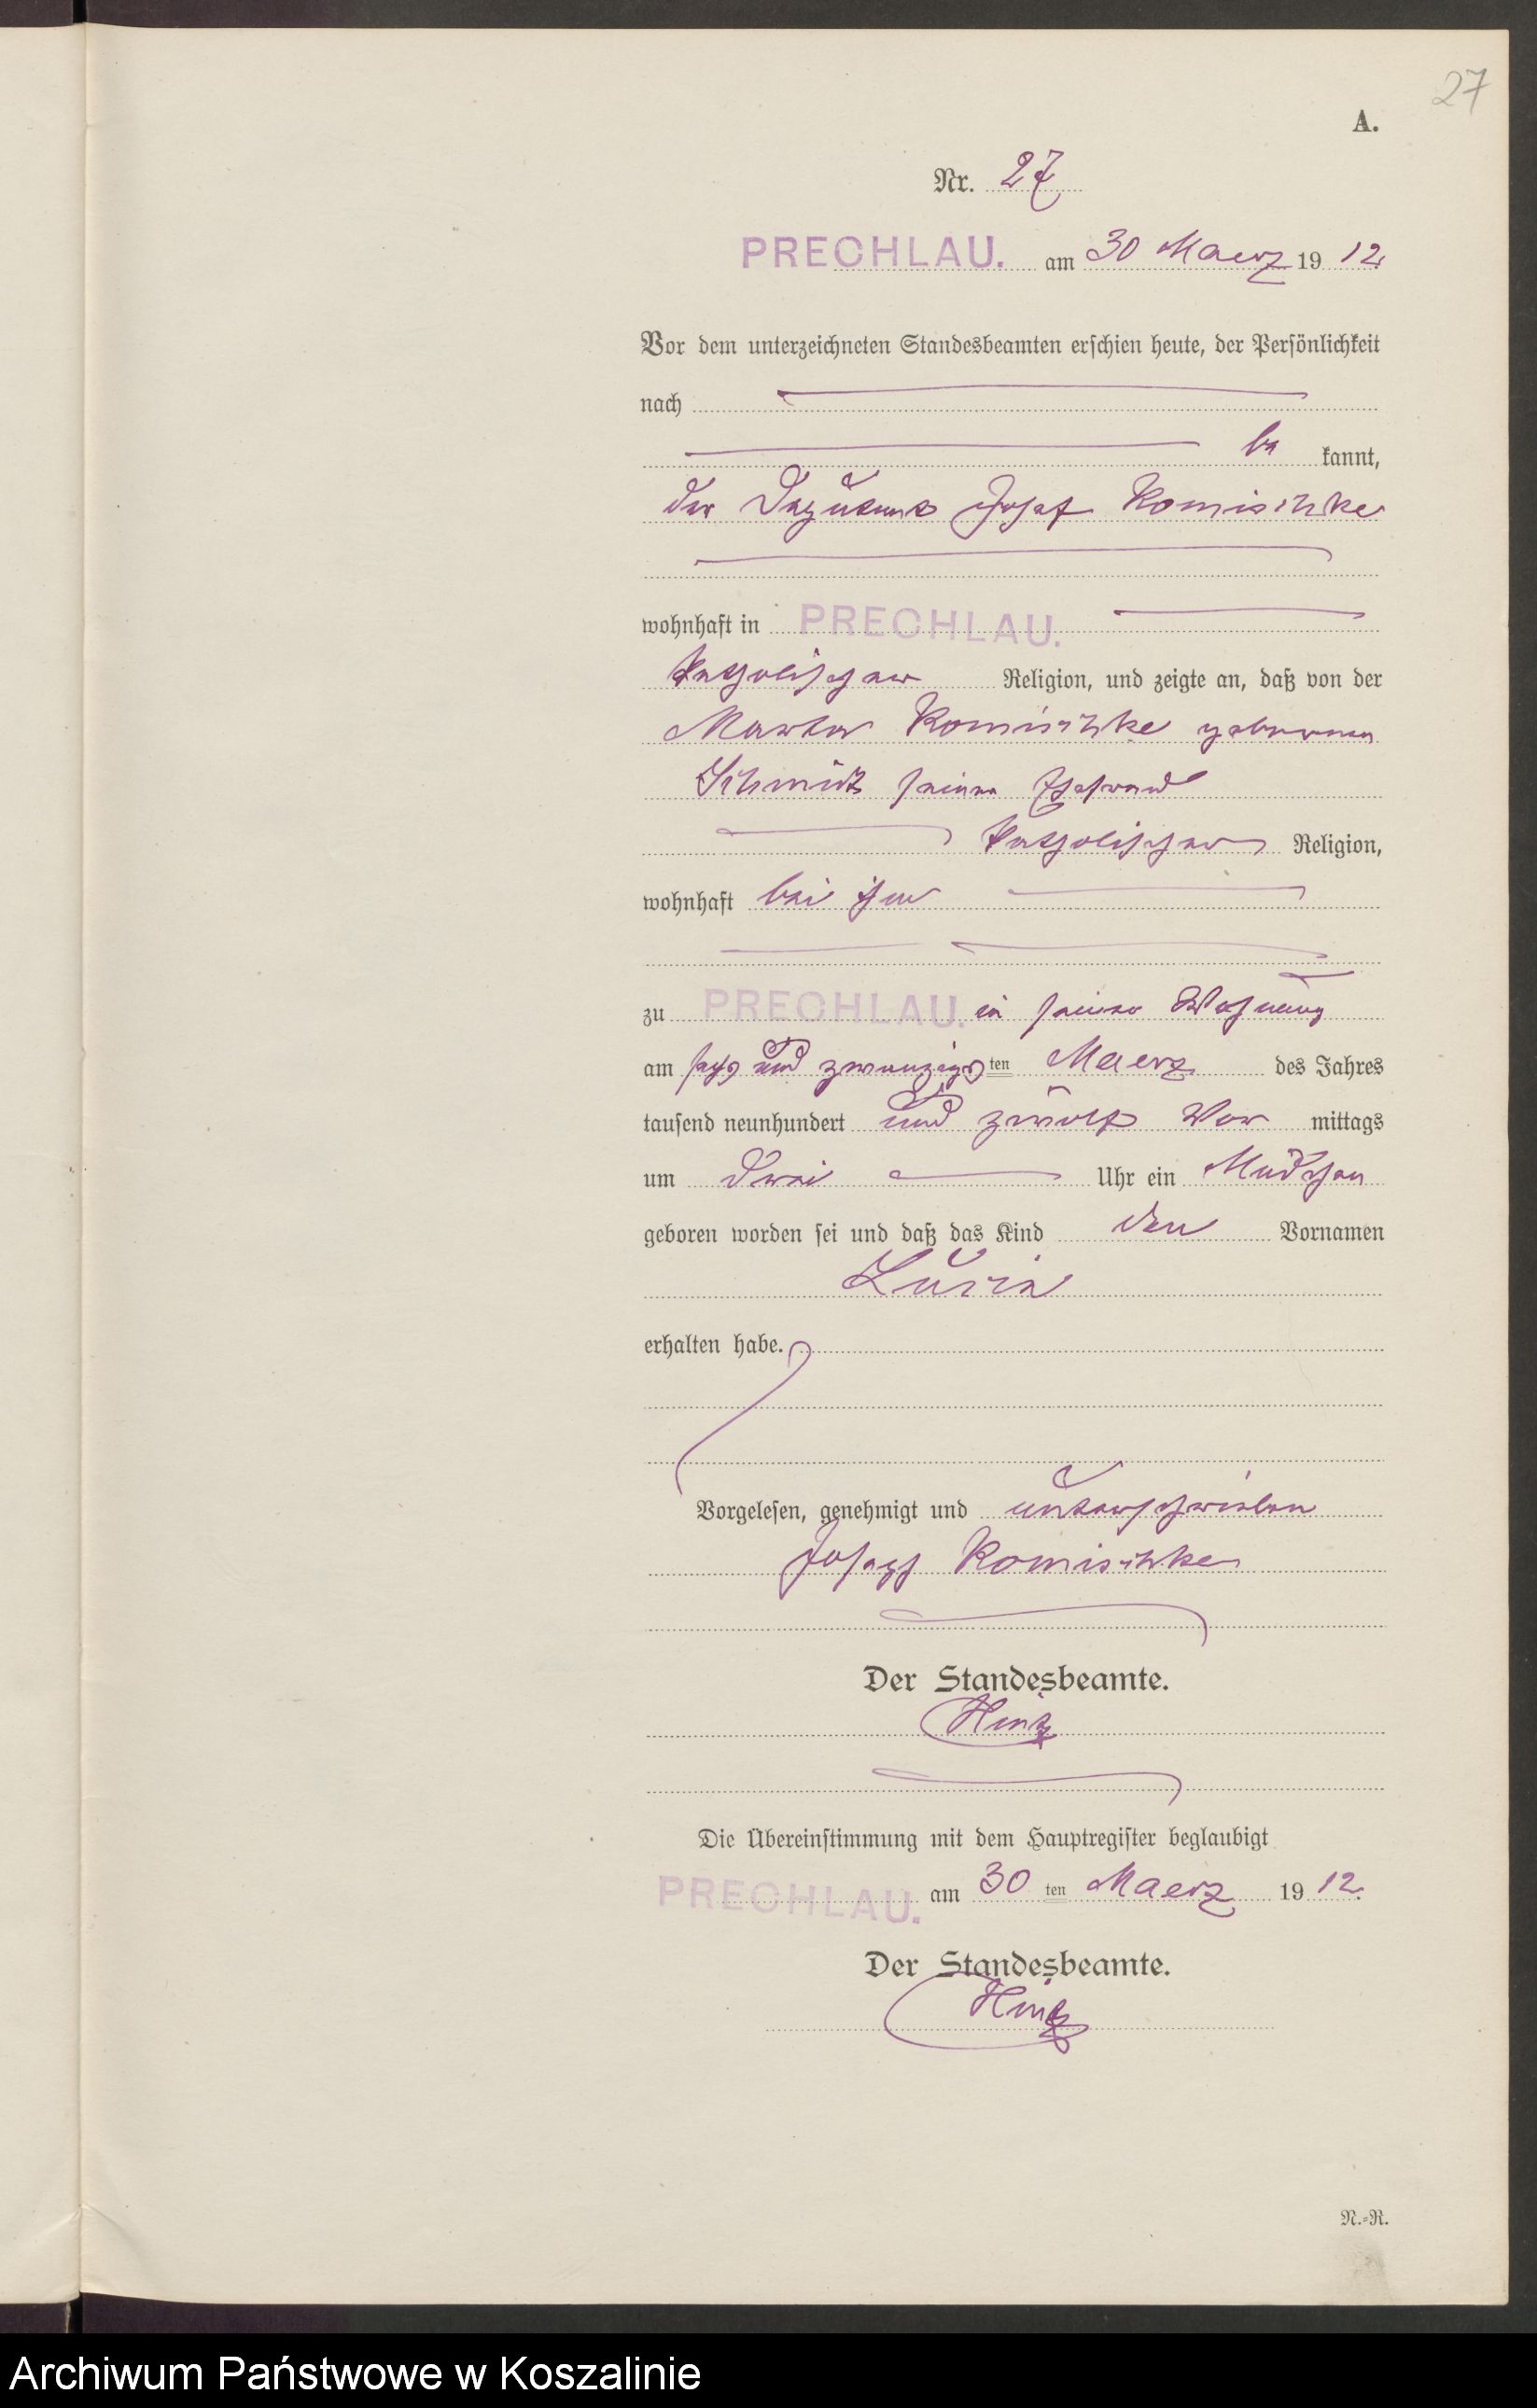 27
A.
Nr. 27
PRECHLAU. am 30 Maerz 1912.
Vor dem unterzeichneten Standesbeamten erschien heute, der Persönlichkeit
nach
be kannt,
der Deputant Josef Komischke
wohnhaft in PRECHLAU.
katholischer Religion, und zeigte an, daß von der
Marta Komischke geborenen
Schmidt seiner Ehefrau
katholischer Religion,
wohnhaft bei ihm
zu PRECHLAU. in seiner Wohnung
am sechs und zwanzigsten Maerz des Jahres
tausend neunhundert und zwölf Vor mittags
um drei Uhr ein Mädchen
geboren worden sei und daß das Kind den Vornamen
Lucia
erhalten habe.
Vorgelesen, genehmigt und unterschrieben
Joseph Komischke
Der Standesbeamte.
Hintz
Die Übereinstimmung mit dem Hauptregister beglaubigt
PRECHLAU. am 30 ten Maerz 1912.
Der Standesbeamte.
Hintz
N.=R.
Archiwum Państwowe w Koszalinie